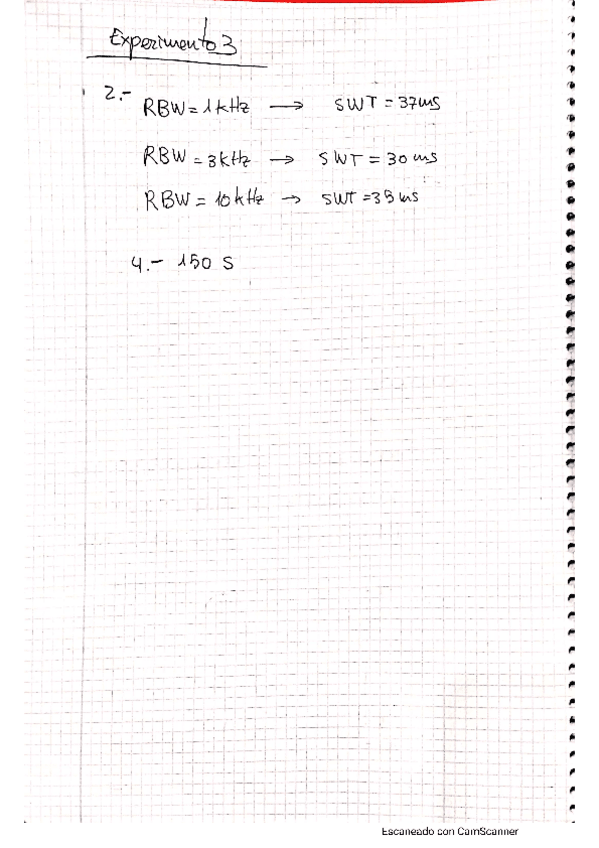 Experimento 3
2.- RBW = 1 kHz → SWT = 37ms
RBW = 3kHz → SWT = 30 ms
RBW = 10 kHz → SWT = 35 ms
4.- 150 S
Escaneado con CamScanner